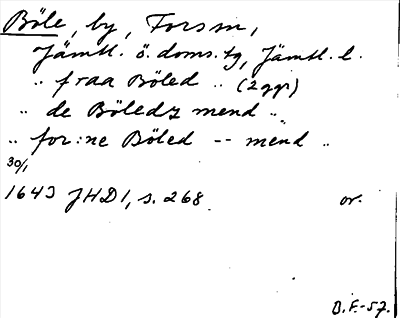 Böle, by, Forsm,
Jämtl. ö. doms.tg, Jämtl. l.
" fraa Böled " (2ggr)
" de Böledz mend "
" for:ne Böled -- mend "
30/1
1643 JHD1, s. 268 or.
B.F.-57.